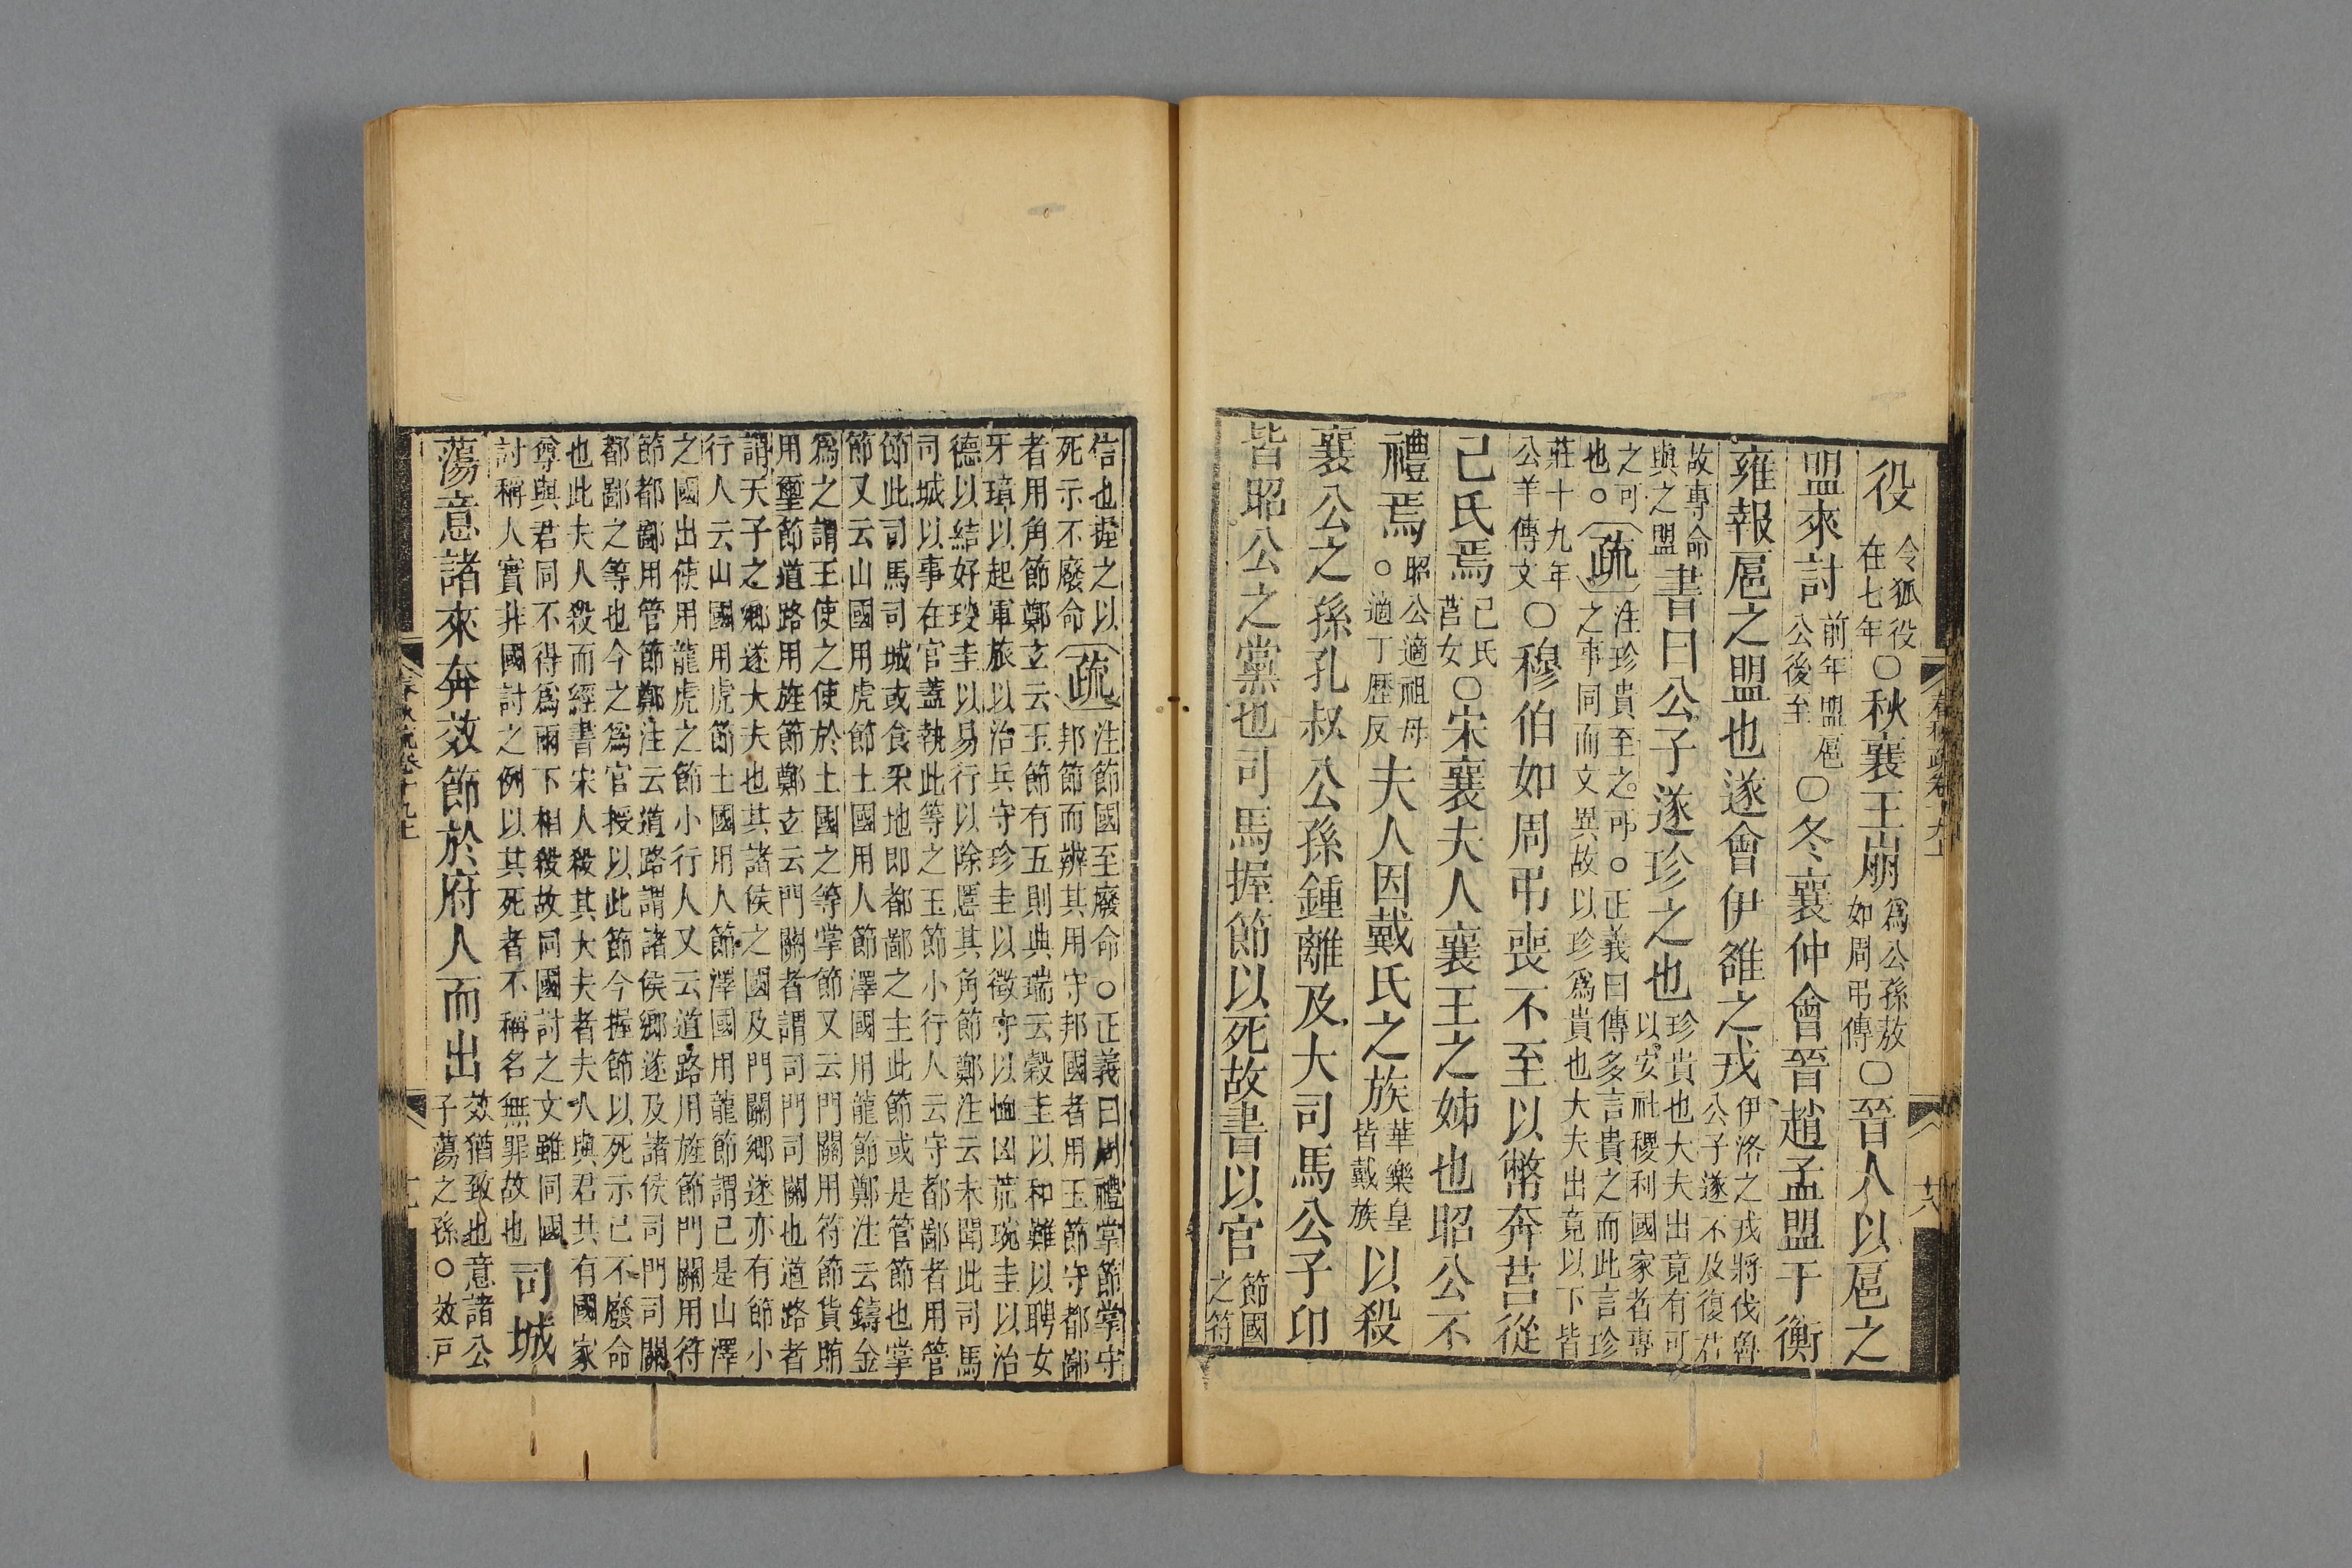 役令狐役在七年○秋襄王崩爲公孫敖如周弔傳○晉人以扈之
盟來討前年盟扈公後至○冬襄仲會晉趙孟盟于衡
雍報扈之盟也遂會伊雒之戎伊洛之戎將伐魯公子遂不及復君
故專命與之盟書曰公子遂珍之也珍貴也大夫出竟有可以安社稷利國家者專
之可也○疏注珍貴至之可○正義曰傳多言貴之而此言珍之事同而文異故以珍爲貴也大夫出竟以下皆
莊十九年公羊傳文○穆伯如周弔喪不至以幣奔莒從
己氏焉己氏莒女○宋襄夫人襄王之姊也昭公不
禮焉昭公適祖母○適丁歷反夫人因戴氏之族華樂皇皆戴族以殺
襄公之孫孔叔公孫鍾離及大司馬公子卬
皆昭公之黨也司馬握節以死故書以官節國之符
信也握之以死示不廢命疏注節國至廢命○正義曰周禮掌節掌守邦節而辨其用守邦國者用玉節守都鄙
者用角節鄭玄云玉節有五則典瑞云穀圭以和難以聘女
牙璋以起軍旅以治兵守珍圭以徵守以恤凶荒琬圭以治
德以結好琰圭以易行以除慝其角節鄭注云未聞此司馬
司城以事在官蓋執此等之玉節小行人云守都鄙者用管
節此司馬司城或食釆地即都鄙之主此節或是管節也掌
節又云山國用虎節土國用人節澤國用龍節鄭注云鑄金
爲之謂王使之使於土國之等掌節又云門關用符節貨賄
用璽節道路用旌節鄭玄云門關者謂司門司關也道路者
謂天子之鄉遂大夫也其諸侯之國及門關鄉遂亦有節小
行人云山國用虎節土國用人節澤國用龍節謂己是山澤
之國出使用龍虎之節小行人又云道路用旌節門關用符
節都鄙用管節鄭注云道路謂諸侯鄉遂及諸侯司門司關
都鄙之等也今之爲官授以此節今握節以死示己不廢命
也此夫人殺而經書宋人殺其大夫者夫人與君共有國家
尊與君同不得爲兩下相殺故同國討之文雖同國
討稱人實非國討之例以其死者不稱名無罪故也司城
蕩意諸來奔效節於府人而出效猶致也意諸公子蕩之孫○效戸
春秋疏卷十九上